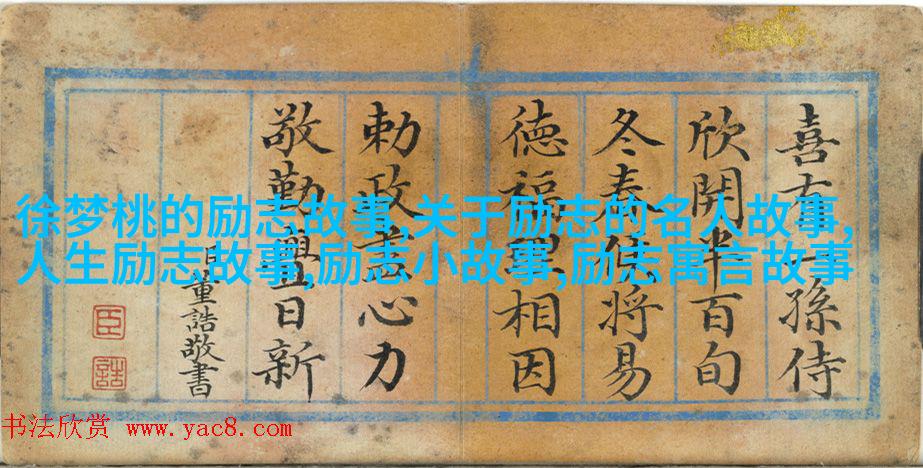 喜有孫侍
欣開半百旬
冬春將易
德福理相因
勅政心力
敬勤與日新
臣董誥敬書
臣
誥
徐梦桃的励志故事,关于励志的名人故事,
人生励志故事,励志小故事,励志寓言故事
书法欣赏 www.yac8.com